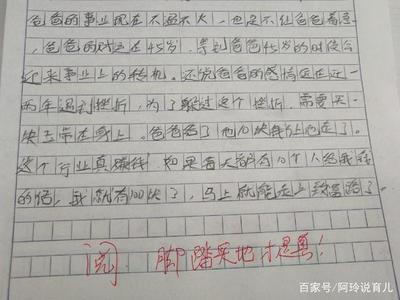 爸爸的事业现在不温不火,也是不红爸爸着急
,爸爸的财运在45岁,等到爸爸45岁的时候会
迎来事业上的转机。还说爸爸的感情运在近一
两年遇到挫折,为了躲过这个挫折,需要买一
块玉带在身上。爸爸给了他10块钱他走了。
这个行业真赚钱,如果每天都有10个人给我钱
的话,我就有100块了,马上就能走上致富路了。
阅 脚踏实地才是真!
百家号/阿玲说育儿